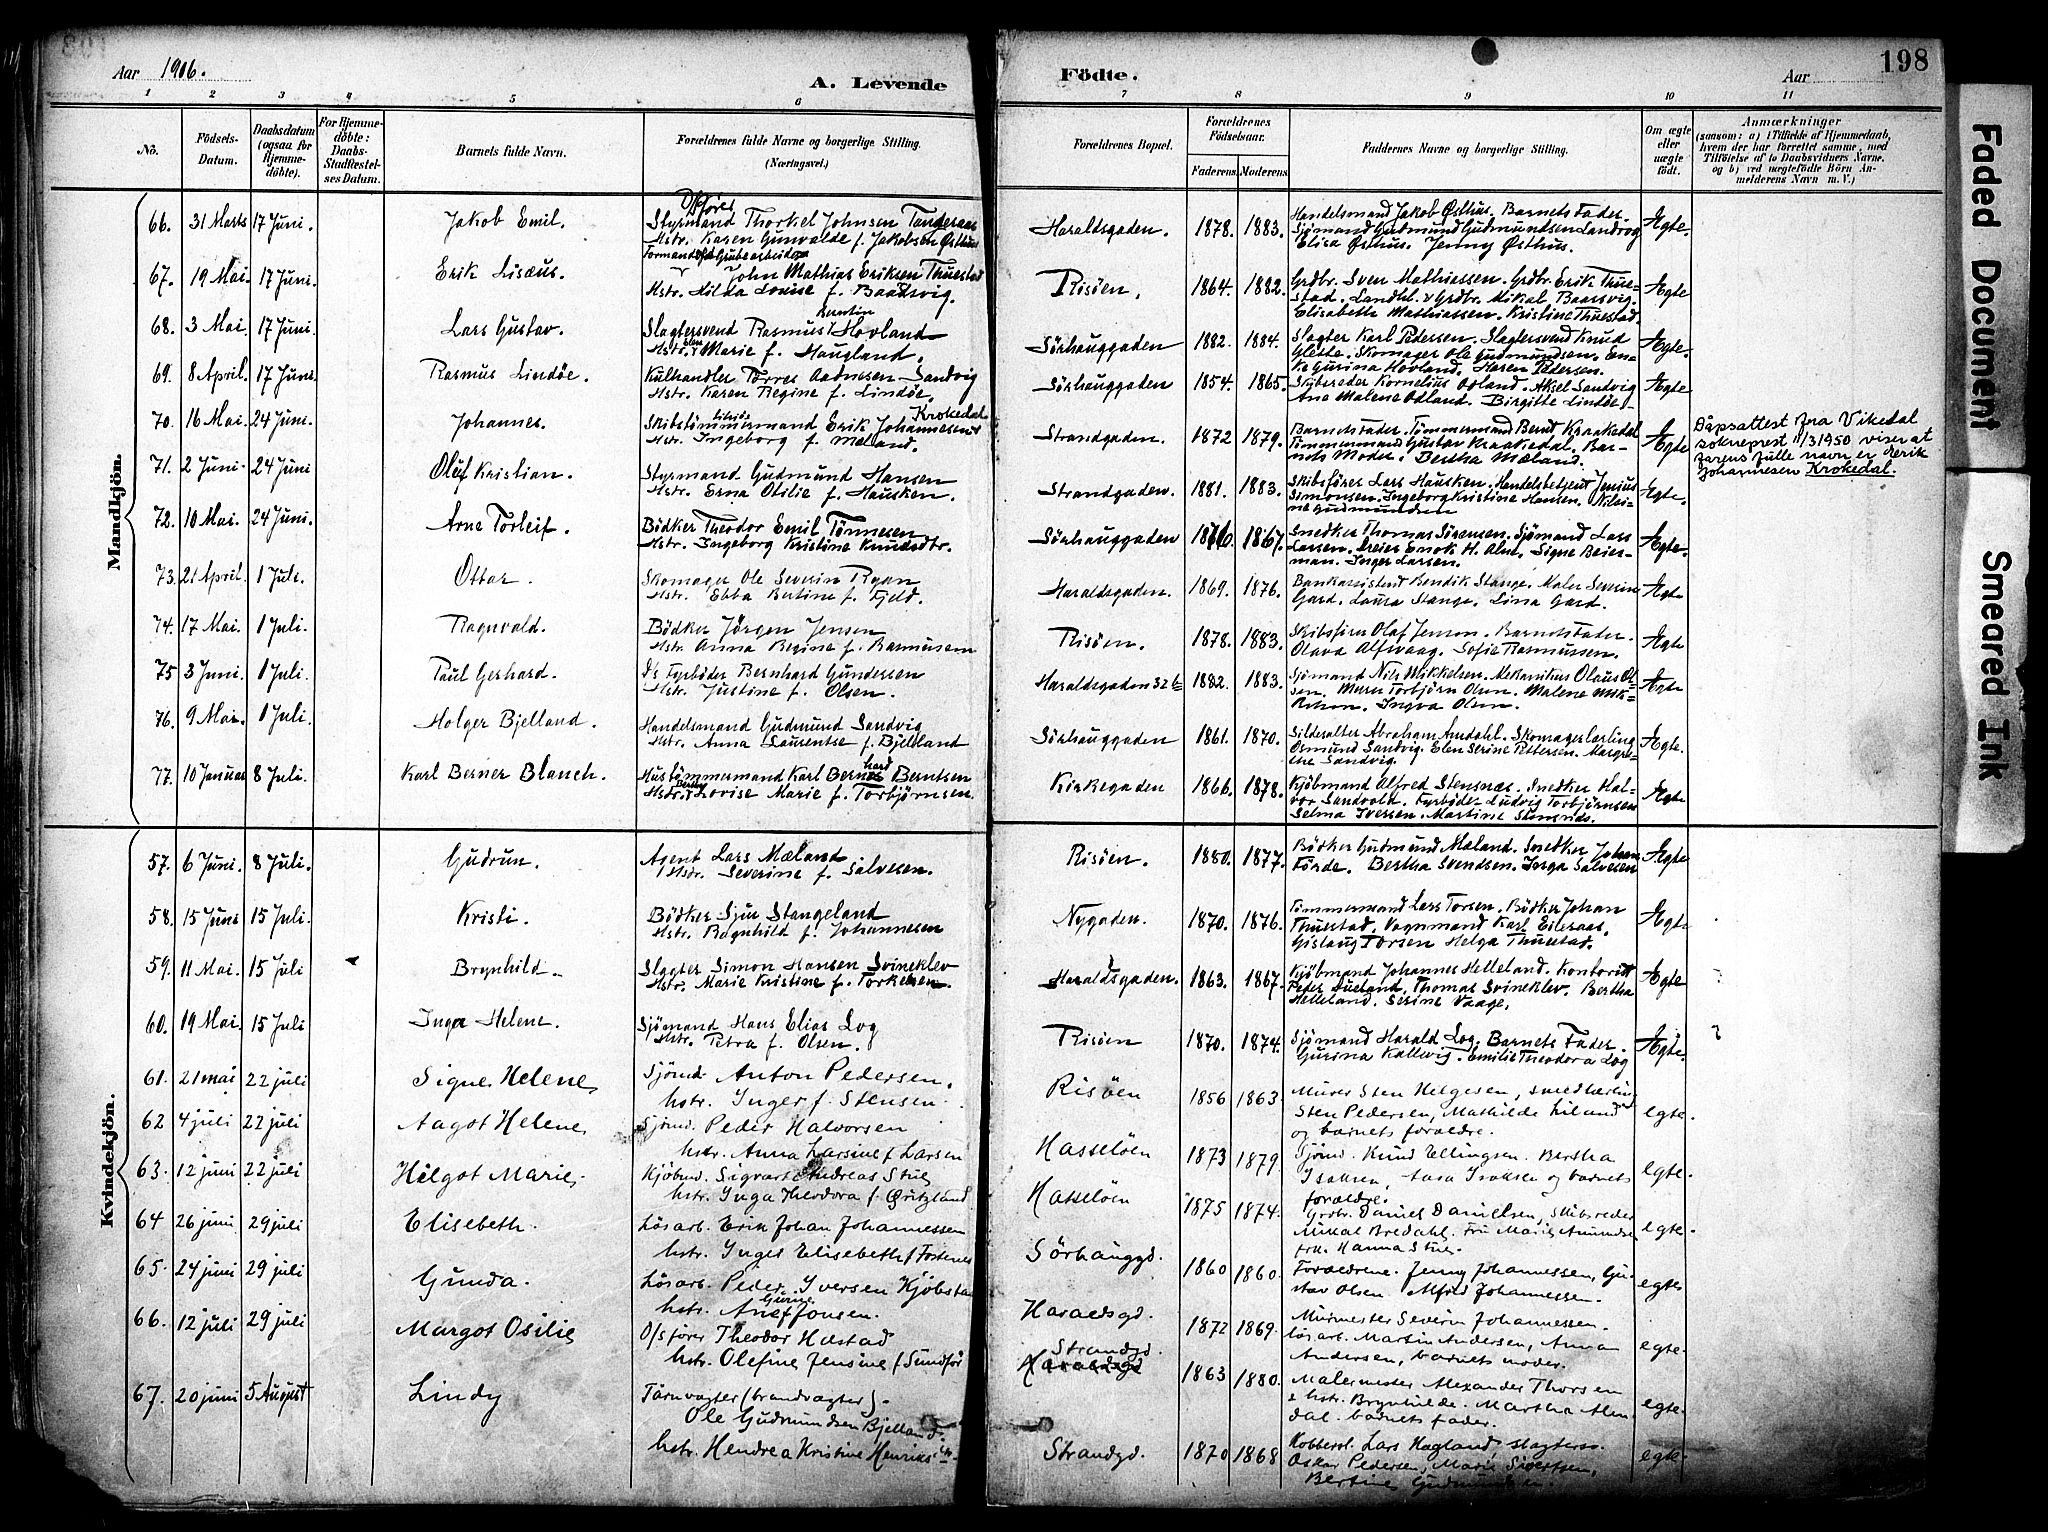 198
Aar 1906.
A. Levende
Födte.
Aar
1 2 3 4 5 6 7 8 9 10 11
No.
Födsels-Datum.
Daabsdatum (ogsaa for Hjemmedöbte).
For Hjemmedöbte: Daabs-Stadfæstelses Datum.
Barnets fulde Navn.
Forældrenes fulde Navne og borgerlige Stilling. (Næringsvei.)
Forældrenes Bopæl.
Forældrenes Födselsaar.
Faderens. Moderens.
Faddernes Navne og borgerlige Stilling.
Om ægte eller uægte födt.
Anmærkninger
(saasom: a) i Tilfælde af Hjemmedaab, hvem der har forrettet samme, med Tilföielse af to Daabsvidners Navne, og b) ved uægtefödte Börn Anmelderens Navn m. V.)
Mandkjön.
66. 31 Marts 17 Juni. Jakob Emil. Styrmand Thorkel Johnsen Tangeraas
Hstr. Karen Gunvalde f. Jakobsen Østhus
Haraldsgaden. 1878. 1883. Handelsmand Jakob Østhus. Barnets Fader.
Sjømand Gudmund Gudmundsen Landvog
Elisa Østhus. Jenny Østhus. Ægte.
67. 19 Mai. 17 Juni. Erik Lisæus. John Mathias Eriksen Thuestad
Hstr. Hilda Louise f. Baadsvig.
Risöen. 1864. 1882. Grdbr. Sven Mathiassen. Grdbr. Erik Thuestad. Landhl. & Grdbr. Mikal Baarsvig.
Elisabeth Mathiassen. Kristine Thuestad. Ægte
68. 3 Mai. 17 Juni. Lars Gustav. Slagtersvend Rasmus Berntin Hovland
Hstr. Marie f. Haugland.
Sörhauggaden 1882. 1884. Slagter Karl Pedersen. Slagtersvend Knud
Glette. Skomager Ole Gudmundsen. Enke Gurina Hovland. Karen Pedersen. Ægte.
69. 8 April. 17 Juni. Rasmus Lindöe. Kulhandler Torres Aadnesen Sandvig
Hstr. Karen Regine f. Lindöe.
Sörhauggaden 1854. 1865. Skibsreder Kornelius Odland. Aksel Sandvig
Ane Malene Odland. Birgitte Lindöe. Ægte
70. 16 Mai. 24 Juni. Johannes. Skibstömmermand Erik Johannesen Krokedal
Hstr. Ingeborg f. Mæland.
Strandgaden. 1872 1879. Barnets fader. Tömmermand Bernt Kraakedal
Tömmermand Gustav Kraakedal. Barnets Moder. Bertha Mæland. Ægte
Dåpsattest fra Vikedal
sokneprest 11/3 1950 viser at
farens fulle navn er Erik
Johannesen Krokedal.
71. 2 Juni. 24 Juni Oluf Kristian. Styrmand Gudmund Hansen
Hstr. Erna Otilie f. Hausken.
Strandgaden. 1881. 1883. Skibsförer Lars Hausken. Handelsbetjent Jenius
Simonsen. Ingeborg Kristine Hansen. Nilsine Gudmundsen Ægte.
72. 10 Mai. 24 Juni. Arne Torleif. Bödker Theodor Emil Tönnesen
Hstr. Ingeborg Kristine Knudsdtr.
Sörhauggaden 1867. Snedker Thomas Sörensen. Sjömand Lars
Larsen. Dreier Enok H. Alm. Signe Beierman. Inger Larsen. Ægte.
73. 21 April. 1 Juli. Ottar. Skomager Ole Severin Ryan
Hstr. Ebba Bertine f. Fjeld.
Haraldsgaden. 1869. 1876. Bankassistent Bendik Stange. Maler Severin
Gard. Laura Stange. Lina Gard. Ægte
74. 17 Mai. 1 Juli. Ragnvald. Bödker Jörgen Jensen
Hstr. Anna Regine f. Rasmussen
Risöen. 1878. 1883. Skibsförer Olaf Jenson. Barnets fader.
Olava Alfsvaag. Sofie Rasmussen. Ægte
75 3 Juni. 1 Juli. Paul Gerhard. D/s Fyrböder Bernhard Gundersen
Hstr. Justine f. Olsen.
Haraldsgaden 32 b 1882. 1883. Sjömand Nils Mikkelsen. Mekanikus Olaus Olsen. Murer Torbjörn Olsen. Malene Mikkelsen. Ingva Olsen. Ægte
76. 9 Mai. 1 Juli. Holger Bjelland. Handelsmand Gudmund Sandvig
Hstr. Anna Laurentse f. Bjelland
Sörhauggaden 1861. 1870. Sildesalter Abraham Amdahl. Skomagerlærling
Osmund Sandvig. Elen Serine Pettersen. Margrethe Sandvig. Ægte.
77. 10 Januar 8 Juli. Karl Berner Blanch. Hustömmermand Karl Bernhard Berntsen
Hstr. Lovise Marie f. Torbjörnsen.
Kirkegaden 1866. 1878. Kjöbmand Alfred Stensnæs. Snedker Halvor Sandvold. Fyrböder Ludvig Torbjörnsen
Selma Iversen. Martine Ægte
Kvindekjön.
57. 6 Juni. 8 Juli. Gudrun. Agent Lars Mæland
Hstr. Severine f. Salvesen.
Risöen. 1880. 1877. Bödker Gudmund Mæland. Snedker Johan
Förde. Bertha Svendsen. Inga Salvesen Ægte
58. 15 Juni 15 Juli. Kristi. Bödker Sjur Stangeland
Hstr. Ragnhild f. Johannesen
Nygaden. 1870. 1876. Tömmermand Lars Torsen. Bödker Johan
Thuestad. Vognmand Karl Eileraas.
Gislaug Torsen Helga Thuestad. Ægte
59. 11 Mai. 15 Juli Brynhild. Slagter Simon Hansen Svineklev
Hstr. Marie Kristine f. Torkelsen.
Haraldsgaden. 1863. 1867. Kjöbmand Johannes Helleland. Kontorist
Peder Dueland. Thomas Svineklev. Bertha
Helleland. Serine Vaage. Ægte
60. 19 Mai. 15 Juli Inga Helene. Sjömand Hans Elias Log
Hstr. Petra f. Olsen.
Risöen 1870. 1874. Sjömand Harald Log. Barnets Fader.
Gurina Kallevig. Emilie Theodora Log Ægte.
61. 21 mai 22 juli Signe Helene Sjömd. Anton Pedersen.
hstr. Inger f. Stensen.
Risöen 1856 1863 Murer Sten Helgesen, smedlærling
Sten Pedersen, Mathilde Liland
og barnets forældre. egte.
62 4 juli 22 juli Aagot Helene Sjömd. Peder Halvorsen
hstr. Anna Larsine f Larsen
Hasselöen 1873 1879. Sjömd. Knud Ellingsen. Bertha
Isaksen, Aasa Isaksen og barnets
forældre. egte.
63. 12 juni 22 juli Helgot Marie Kjöbmd. Sigvart Andreas Stue
hstr. Inga Theodora f. Øritzland
Hasselöen 1875 1874. Grdbr. Daniel Danielsen, skibsreder
Mikkal Bredahl. Fru Marie Amundsen
frk. Hanna Stue. egte.
64 26 juni 29 juli Elisebeth. Lösarb. Erik Johan Johannessen
hstr. Inger Elisebeth f Fostenes
Sörhauggd. 1860 1860. Forældrene. Jenny Johannessen, Gustav Olsen Alfred Johannessen. egte
65. 24 juni 29 juli Gunda. Lösarb. Peder Iversen Kjöbstad
hstr. Ane Gurine f Jonsen.
Haraldsgd. 1872 1869. Murmester Severin Johannessen.
lösarb. Martin Andersen, Anna
Andersen, barnets moder. egte.
66. 12 juli 29 juli Margot Osilie O/sförer Theodor Hæstad
hstr. Olefine Jensine f Sundför
Strandgd. Haraldsgd 1863 1880. Malermester Alexander Thorsen
& hstr. Brynhilde. Martha Alendal. barnets fader. egte.
67. 20 juni 5 August Lindy Tårnvagter (brandvagter).
Ole Gudmundsen Bjelland
hstr. Hendrea Kristine Henriks
Strandgd. 1870 1868 Kobbersl. Lars Hagland, slagtersv.
Oskar Pedersen, Marie Sivertsen,
Bertine Gudmundsen. egte.
Faded Document
Smeared Ink